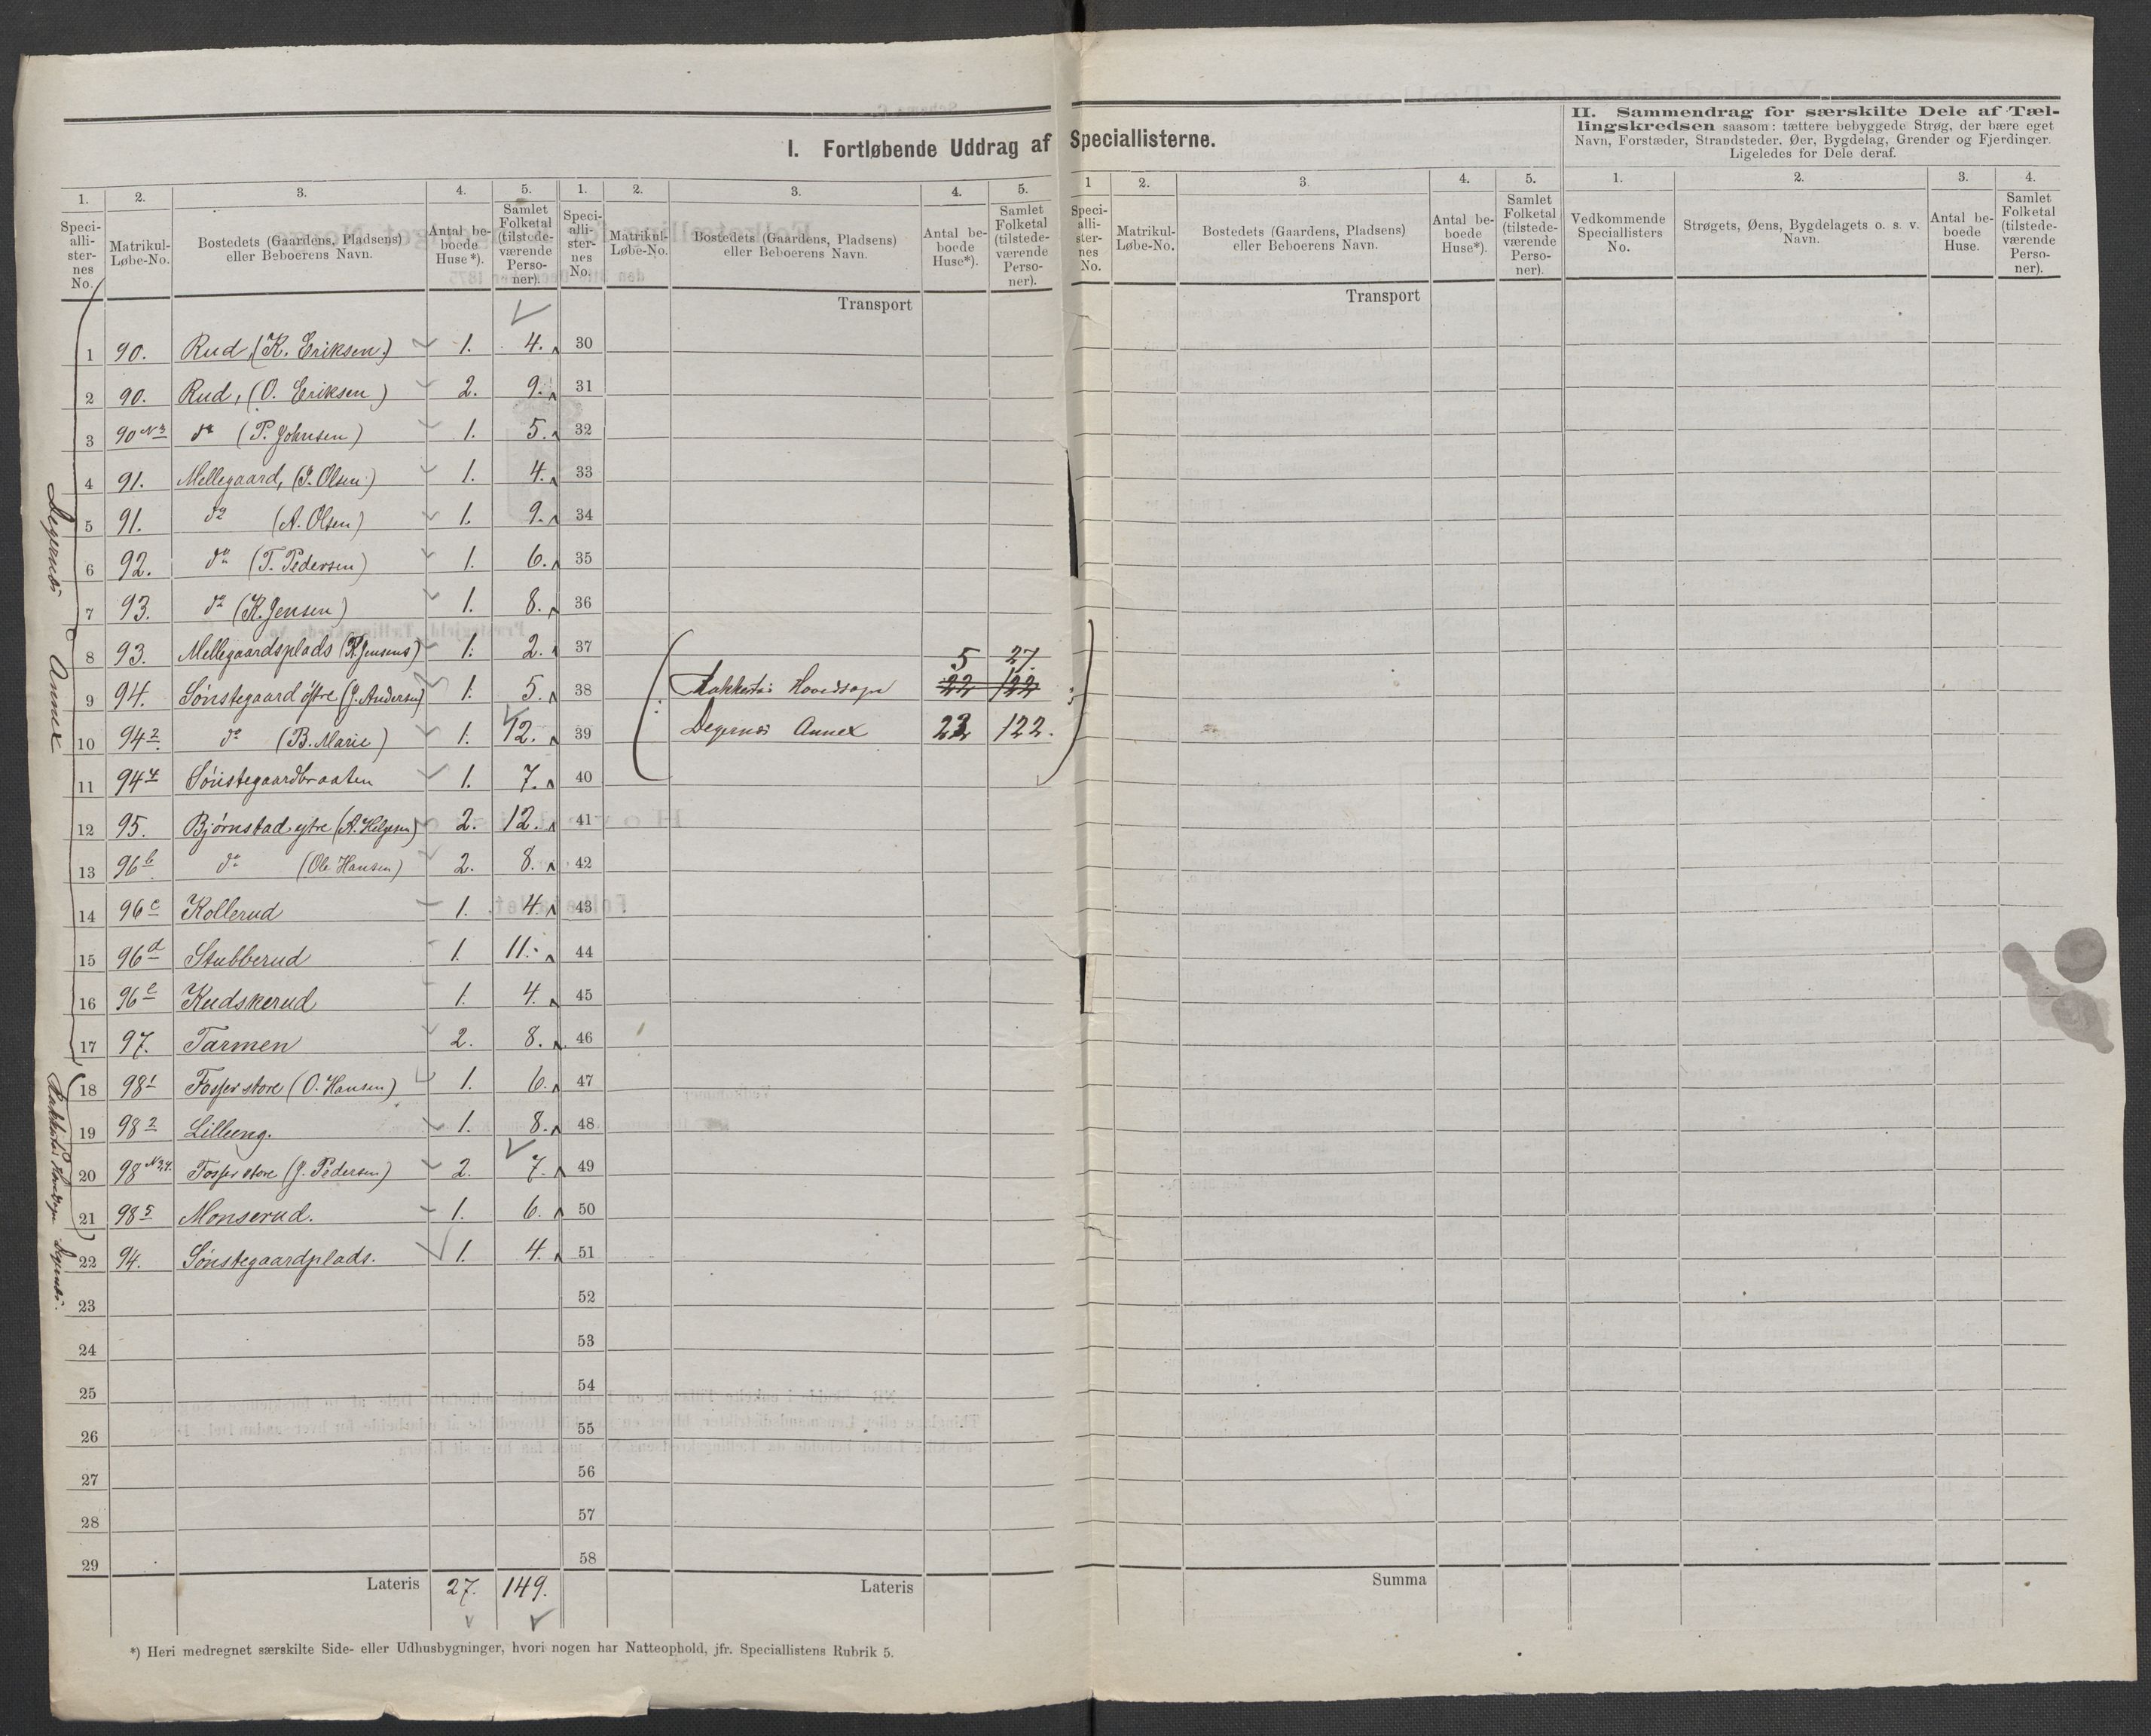 I. Fortløbende Uddrag af Speciallisterne.
II. Sammendrag for særskilte Dele af Tæl-
lingskredsen saasom: tættere bebyggede Strøg, der bære eget
Navn, Forstæder, Strandsteder, Øer, Bygdelag, Grender og Fjerdinger.
Ligeledes for Dele deraf.
1. 2. 3. 4. 5. 1. 2. 3. 4. 5. 1 2. 3. 4. 5. 1. 2. 3. 4.
Speci-alli-ster-nes No. Matrikul-Løbe-No. Bostedets (Gaardens, Pladsens) eller Beboerens Navn. Antal be-boede Huse*). Samlet Folketal (tilstede-værende Perso-ner).
Speci-alli-ster-nes No. Matrikul-Løbe-No. Bostedets (Gaardens, Pladsens) eller Beboerens Navn. Antal be-boede Huse*). Samlet Folketal (tilstede-værende Perso-ner).
Speci-alli-ster-nes No. Matrikul-Løbe-No. Bostedets (Gaardens, Pladsens) eller Beboerens Navn. Antal be-boede Huse*). Samlet Folketal (tilstede-værende Perso-ner).
Vedkommende Speciallisters No. Strøgets, Øens, Bygdelagets o. s. v. Navn. Antal be-boede Huse. Samlet Folketal (tilstede-værende Perso-ner).
Transport
Transport
1 90. Rud, (K. Eriksen) 1. 4. 30
2 90. Rud, (O. Eriksen) 2. 9. 31
3 90 No 3 do (P. Johnsen) 1. 5. 32
4 91. Mellegaard, (J. Olsen) 1. 4. 33
5 91. do (A. Olsen) 1. 9. 34
6 92. do (T. Pedersen) 1. 6. 35
7 93. do (K. Jensen) 1. 8. 36
8 93. Mellegaardsplads (K. Jensens) 1. 2. 37
5 27.
9 94. Sønstegaard østre (J. Andersen) 1. 5. 38 Rakkestad Hovedsogn 22 122
10 94 2 do (B. Marie) 1. 12. 39 Degernes Annex 22 122.
11 94 4 Sønstegaardbraaten 1. 7. 40
12 95. Bjørnstad ytre (A. Helgesen) 2. 12. 41
13 96 b do (Ole Hansen) 2. 8. 42
14 96 c Kollerud 1. 4. 43
15 96 d Stubberud 1. 11. 44
16 96 e Kudskerud 1. 4. 45
17 97. Tarmen 2. 8. 46
18 98 1 Fosser store (O. Hansen) 1. 6. 47
19 98 2 Lilleeng. 1. 8. 48
20 98 No 3,4. Fosser store (J. Pedersen) 2. 7. 49
21 98 5 Monserud. 1. 6. 50
22 94. Sønstegaardplads. 1. 4. 51
23 52
24 53
25 54
26 55
27 56
28 57
29 58
Lateris 27. 149. Lateris
Summa
Degernes Annex
Rakkestad Hovedsogn
Degernes.
*) Heri medregnet særskilte Side- eller Udhusbygninger, hvori nogen har Natteophold, jfr. Speciallistens Rubrik 5.